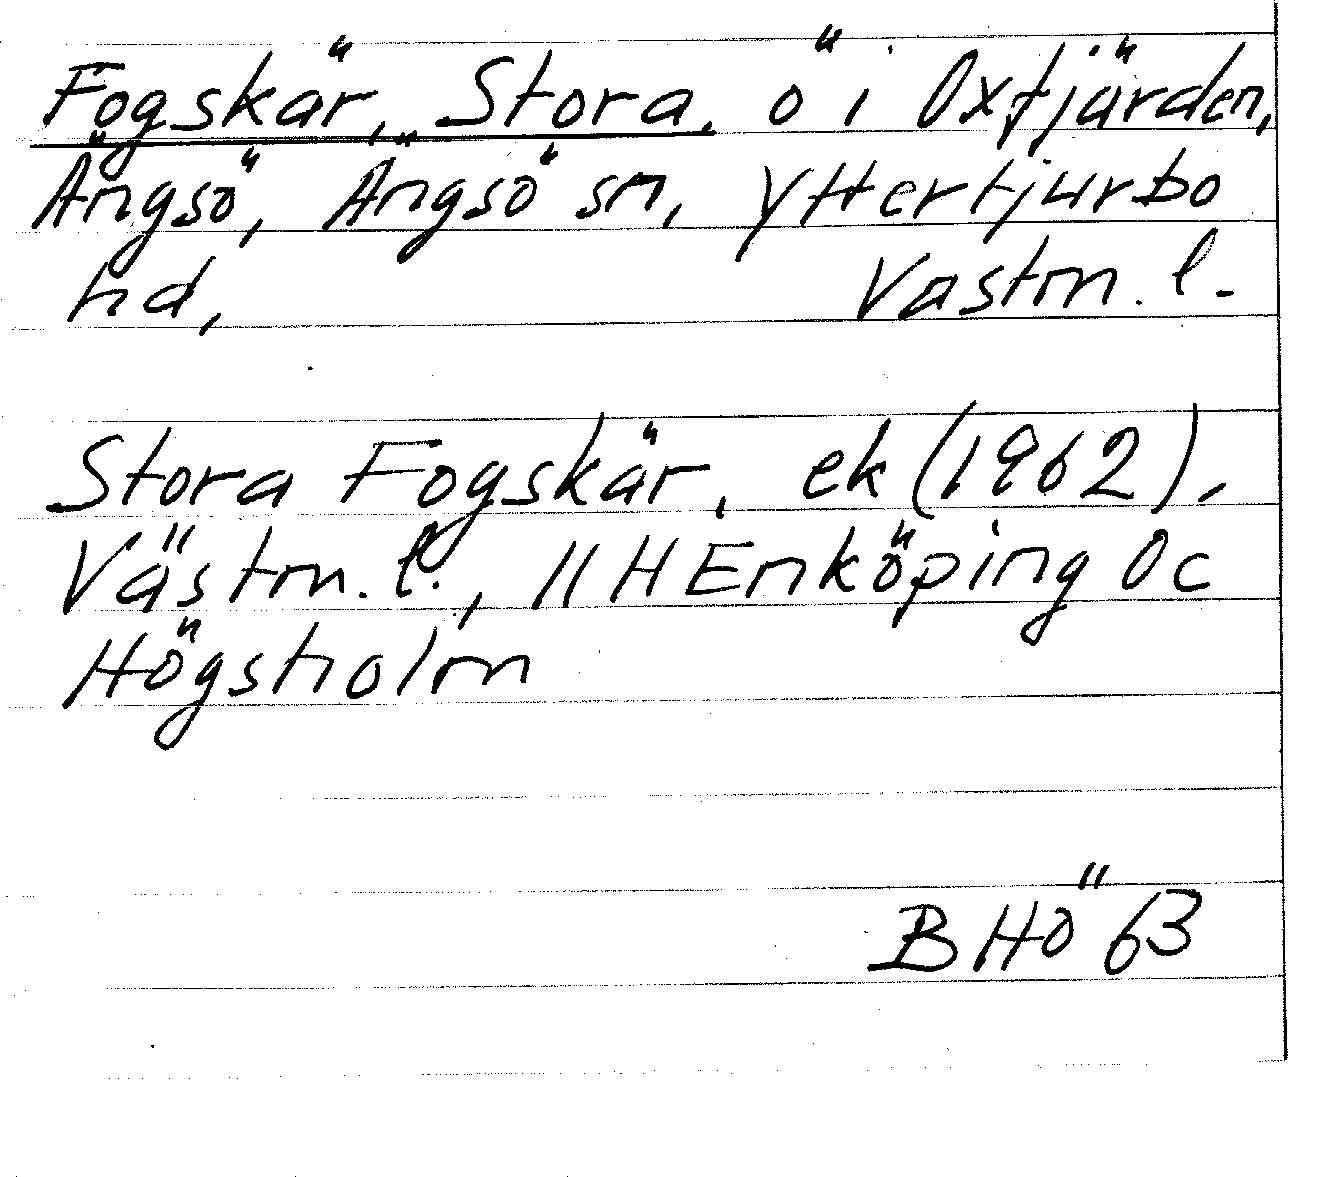 Fogskär, Stora, ö i Oxfjärden,
Ängsö, Ängsö sn, Yttertjurbo
hd, Vastm. l.
Stora Fogskär, ek (1962),
Västm. l., 11H Enköping 0c
Högsholm
BHÖ 63